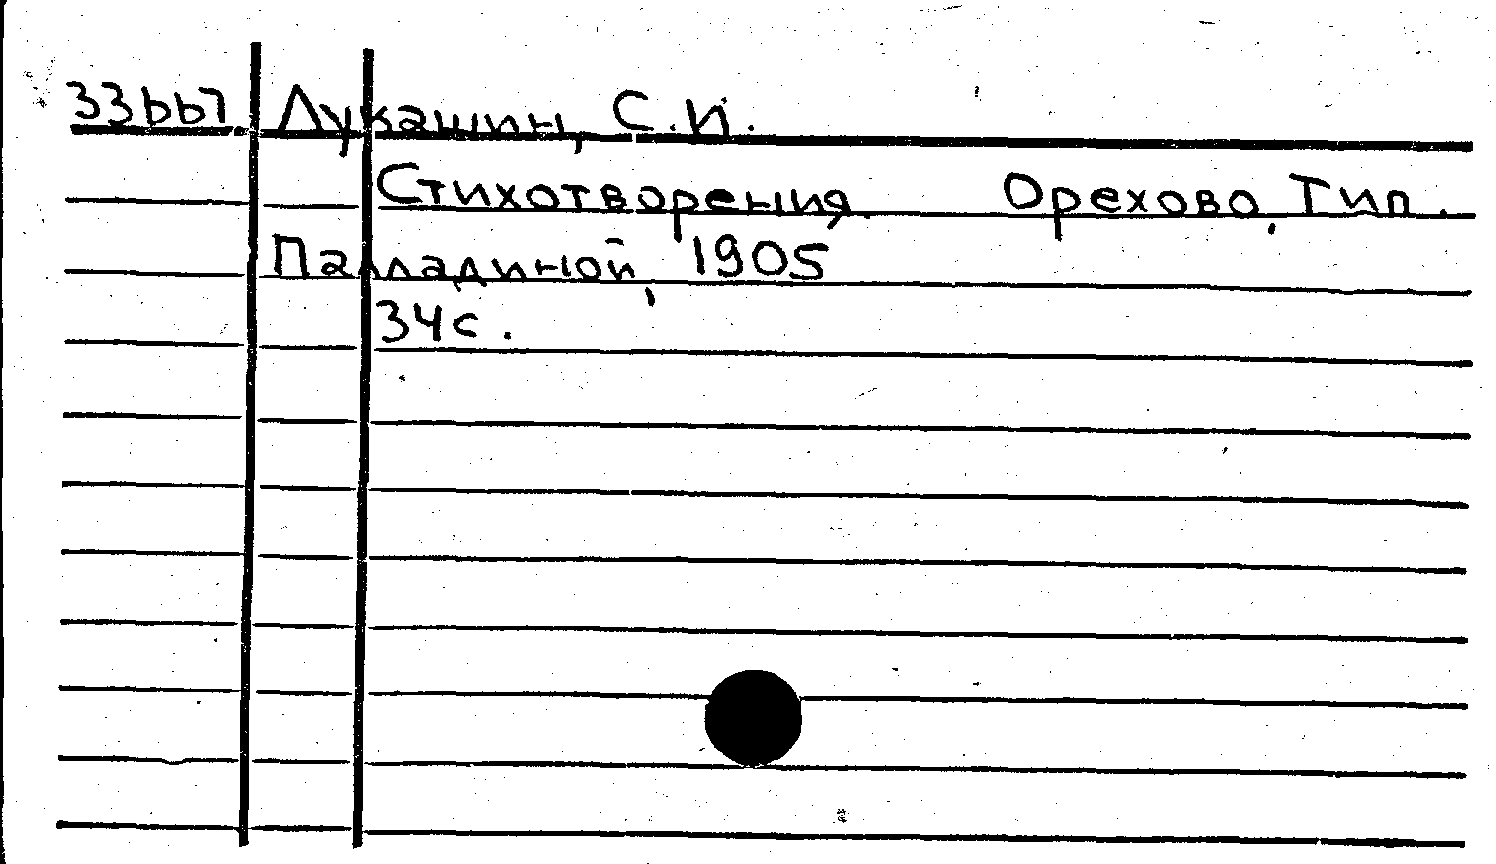 33667 Лукашин, С.И.
Стихотворения. Орехово, Тип.
Палладиной, 1905
34с.